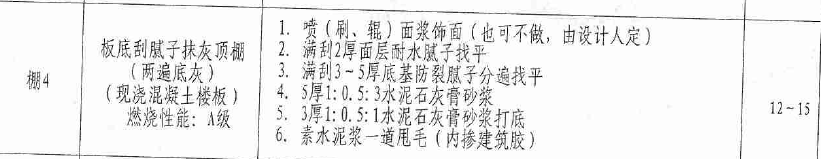 棚4
板底刮腻子抹灰顶棚
(两遍底灰)
(现浇混凝土楼板)
燃烧性能: A级
1. 喷(刷、辊)面浆饰面(也可不做, 由设计人定)
2. 满刮2厚面层耐水腻子找平
3. 满刮3~5厚底基防裂腻子分遍找平
4. 5厚1:0.5:3水泥石灰膏砂浆
5. 3厚1:0.5:1水泥石灰膏砂浆打底
6. 素水泥浆一道甩毛(内掺建筑胶)
12~15